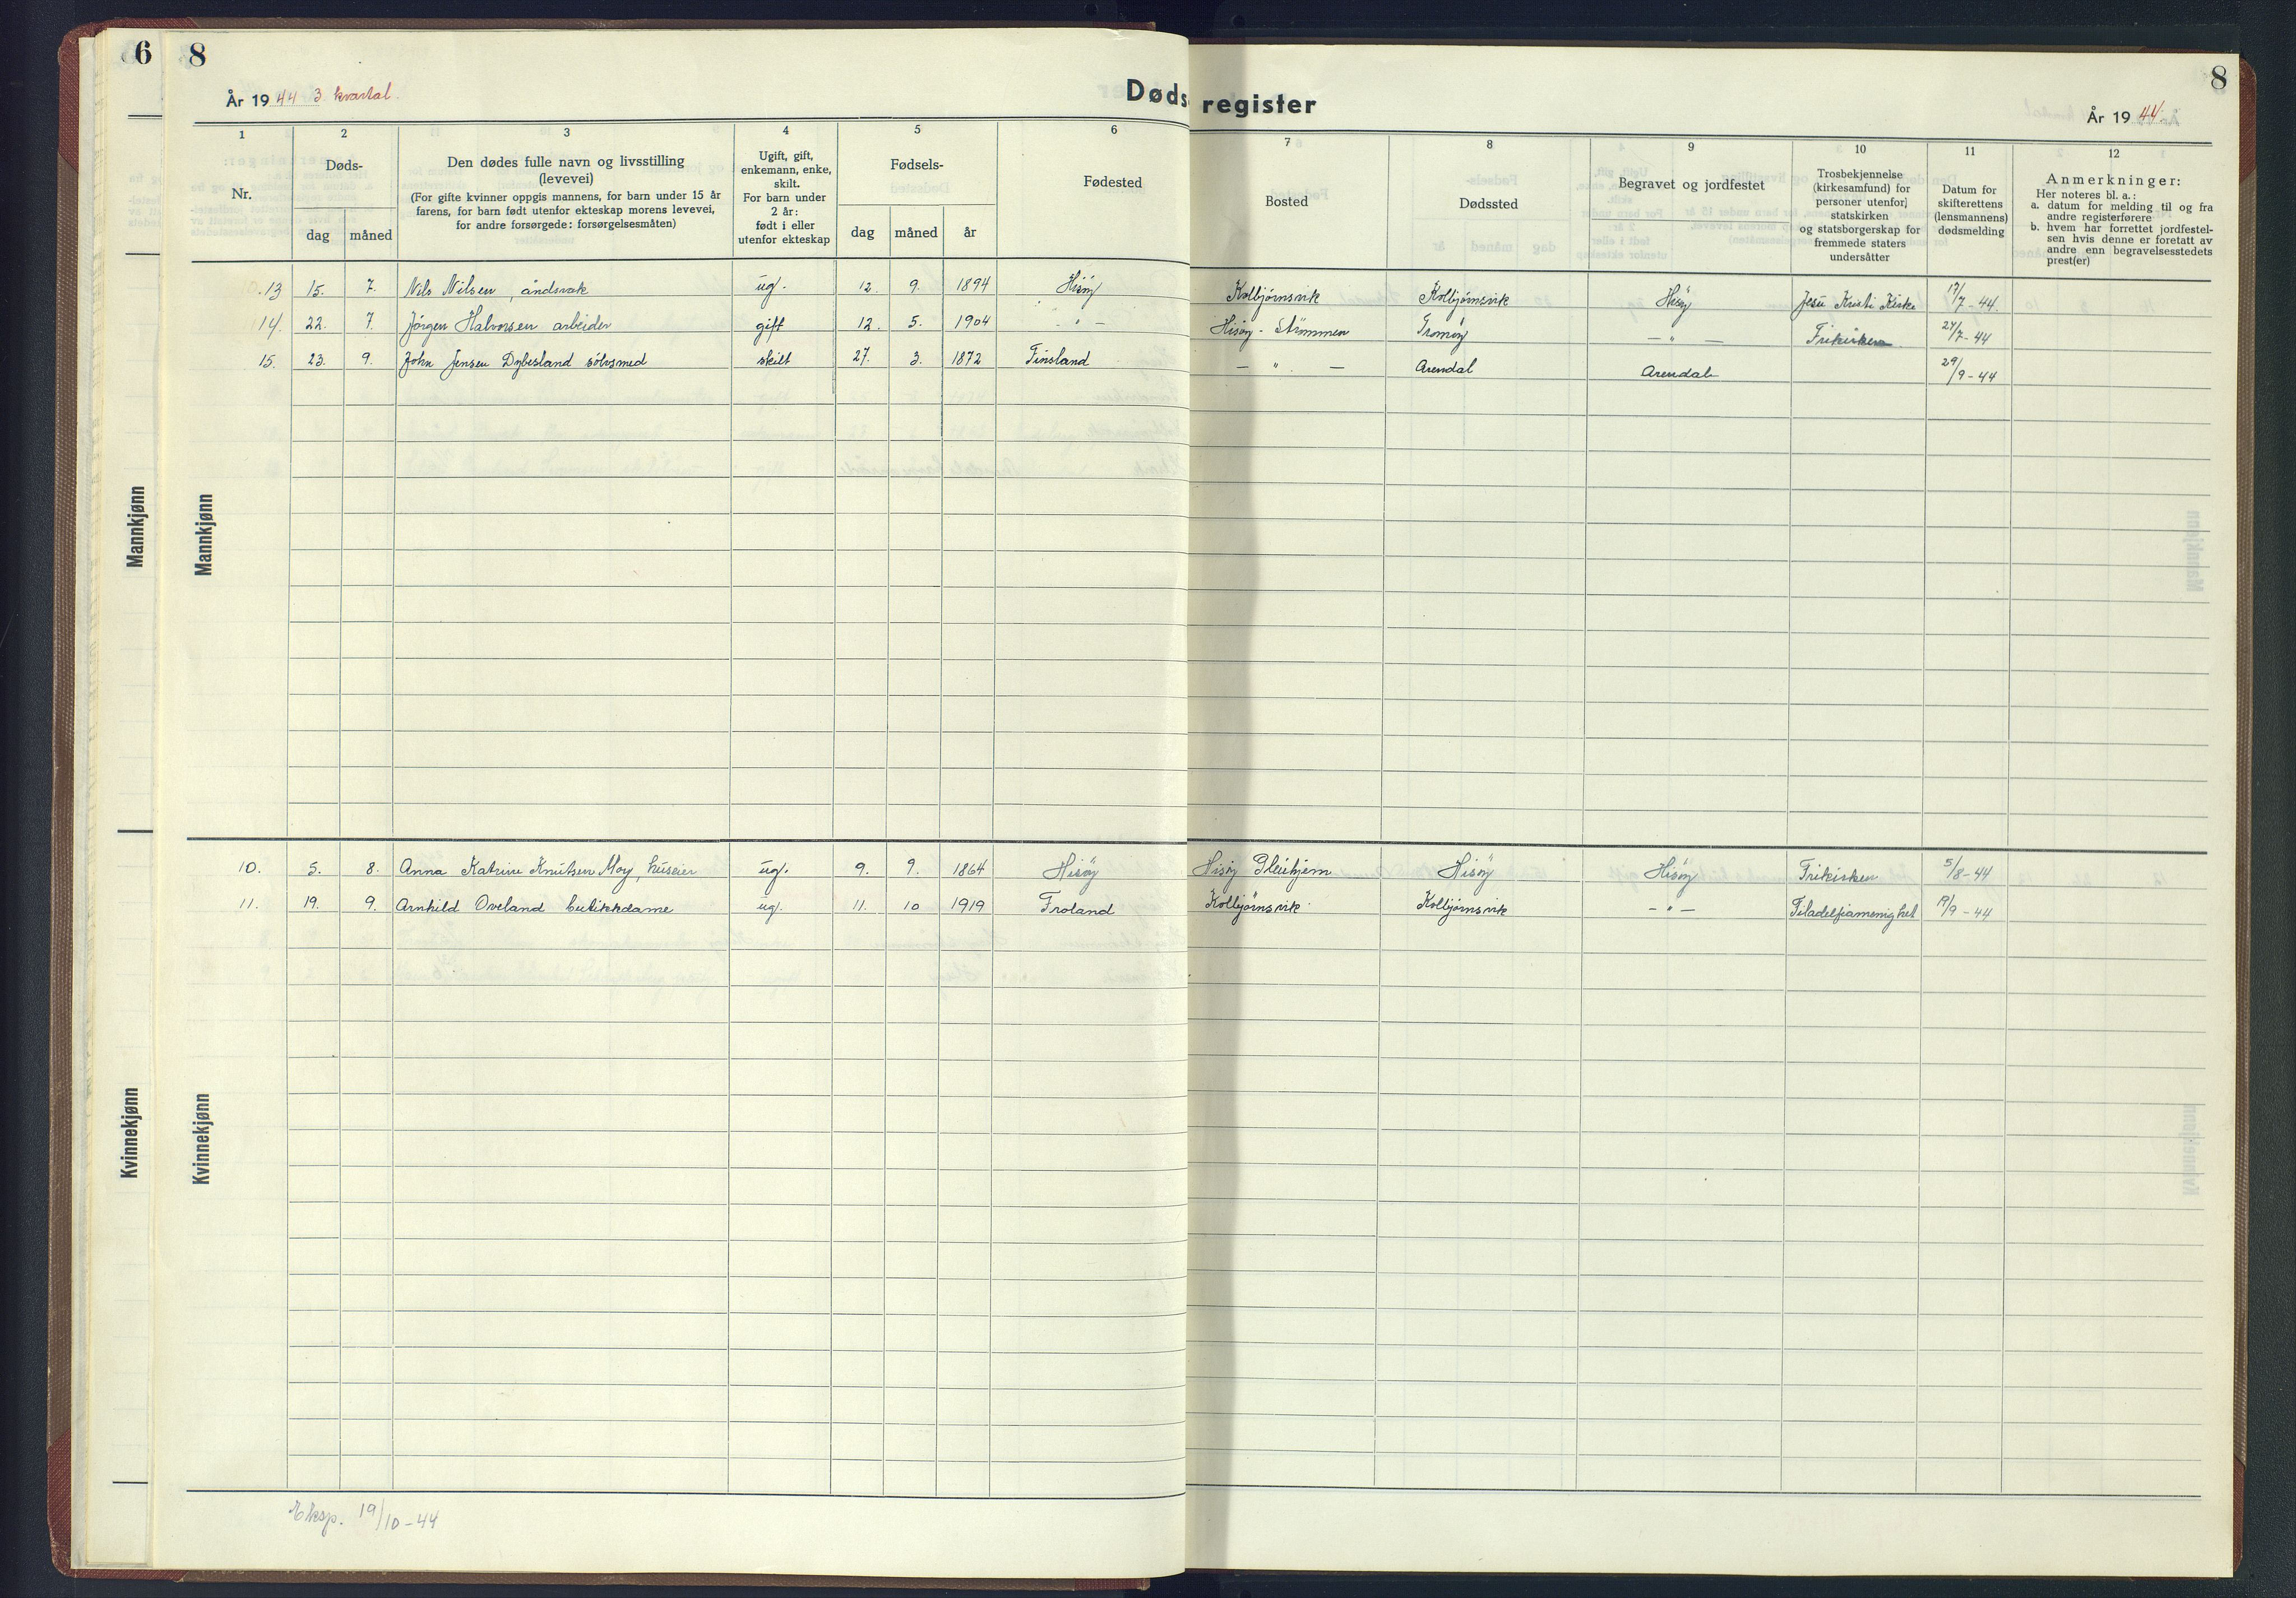 6
8
8
År 1944 3 kvartal.
Døds
register
År 1944.
1
2
3
4
5
6
7
8
9
10
11
12
Nr.
Døds-
dag
måned
Den dødes fulle navn og livsstilling
(levevei)
(For gifte kvinner oppgis mannens, for barn under 15 år
farens, for barn født utenfor ekteskap morens levevei,
for andre forsørgede: forsørgelsesmåten)
Ugift, gift,
enkemann, enke,
skilt.
For barn under
2 år:
født i eller
utenfor ekteskap
Fødsels-
dag
måned
år
Fødested
Bosted
Dødssted
Begravet og jordfestet
Trosbekjennelse
(kirkesamfund) for
personer utenfor
statskirken
og statsborgerskap for
fremmede staters
undersåtter
Datum for
skifterettens
(lensmannens)
dødsmelding
Anmerkninger:
Her noteres bl. a.:
a. datum for melding til og fra
andre registerførere
b. hvem har forrettet jordfestel-
sen hvis denne er foretatt av
andre enn begravelsesstedets
prest(er)
Mannkjønn
Mannkjønn
13 15. 7. Nils Nilsen, åndsvak ug. 12. 9. 1894 Hisøy Kolbjørnsvik Kolbjørnsvik Hisøy Jesu Kristi Kirke 17/7-44.
14. 22. 7. Jørgen Halvorsen arbeider gift 12. 5. 1904 - " - Hisøy - Strømmen Tromøy - " - Frikirken 24/7-44
15. 23. 9. John Jensen Dybesland sølvsmed skilt 27. 3. 1872 Finsland - " - Arendal Arendal 29/9-44
Kvinnekjønn
Kvinnekjønn
10. 5. 8. Anna Katrine Knutsen Moy, huseier ug. 9. 9. 1864 Hisøy Hisøy Pleiehjem Hisøy Hisøy Frikirken 5/8-44
11. 19. 9. Arnhild Oveland butikkdame ug. 11. 10 1919 Froland Kolbjørnsvik Kolbjørnsvik - " - Filadelfiamenighet 19/9-44
Eksp. 19/10-44